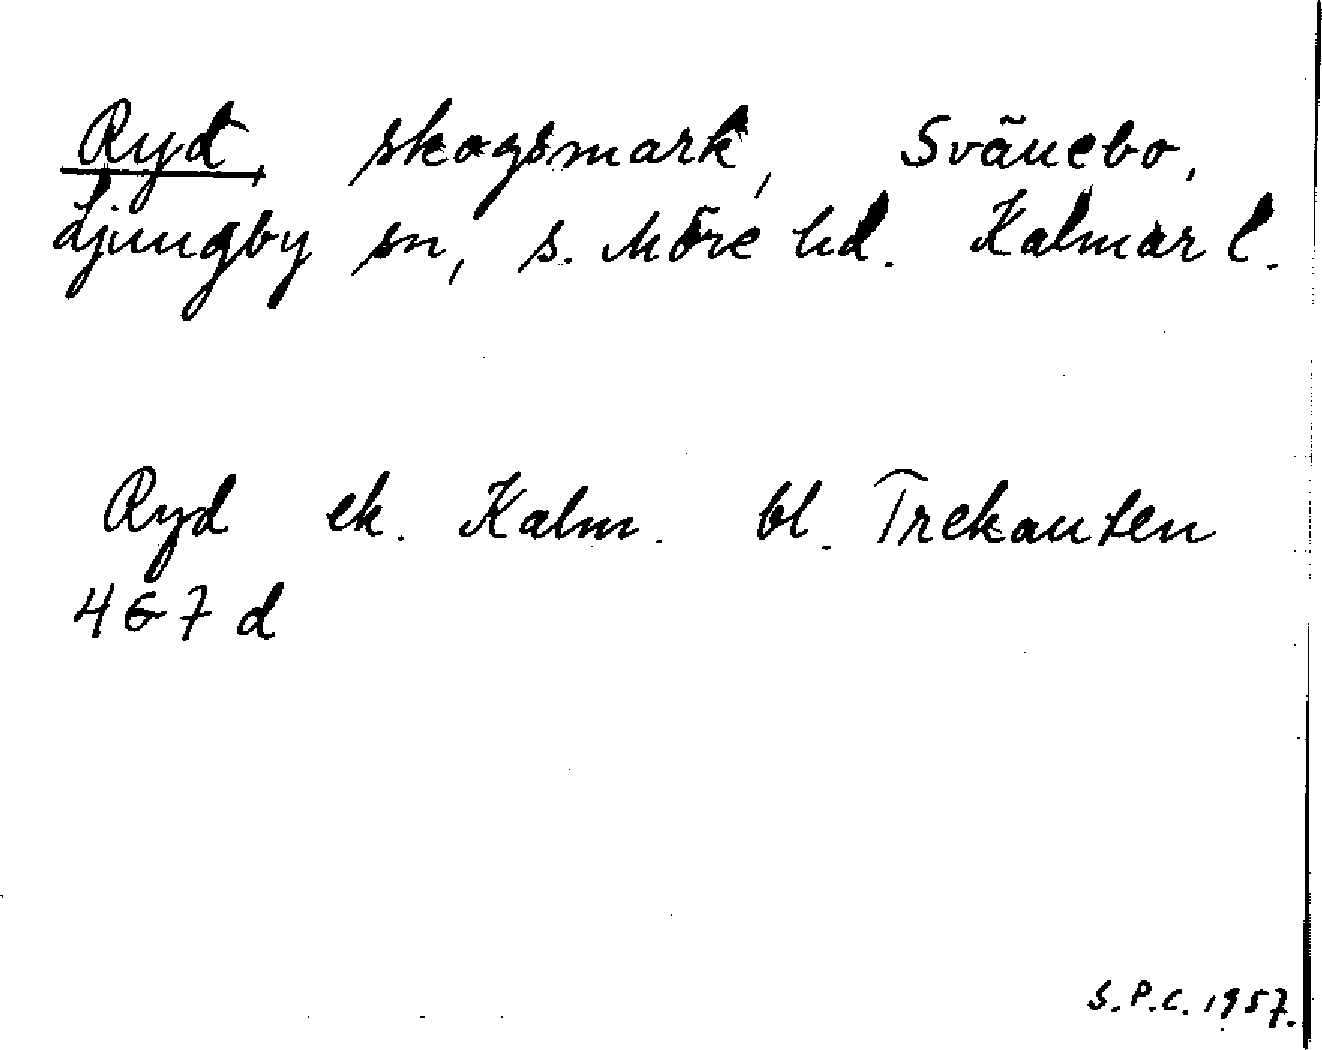 Ryd, skogsmark, Svänebo,
Ljungby sn, S. Möre hd. Kalmar l.
Ryd ek. Kalm. bl. Trekanten
4 G 7 d
S.P.C. 1957.